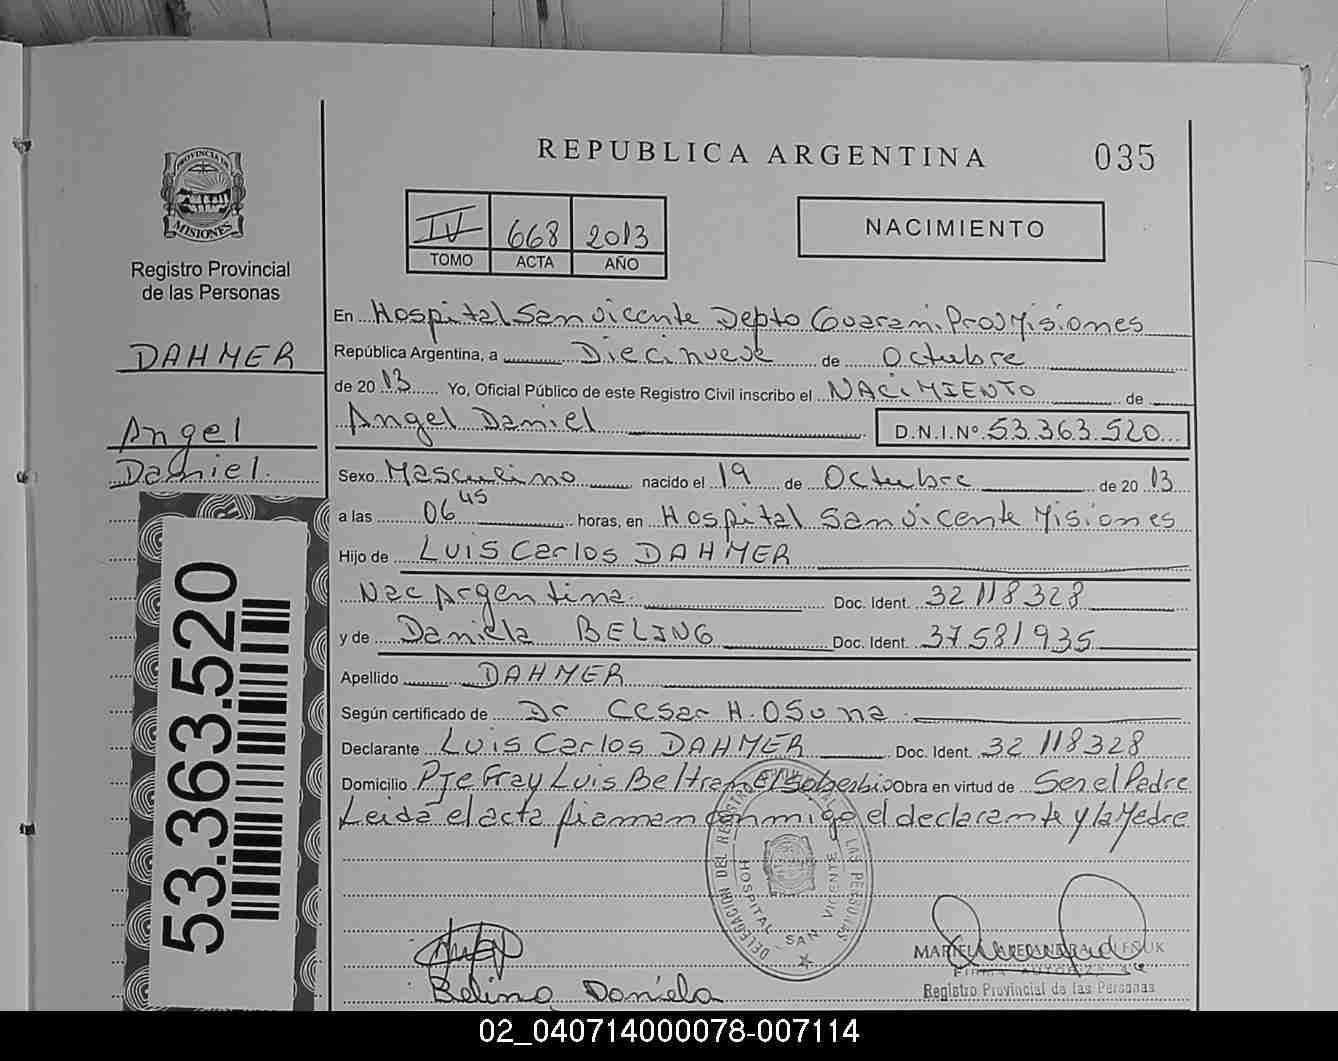 REPUBLICA ARGENTINA
035
PROVINCIA DE
MISIONES
Registro Provincial
de las Personas
DAHMER
Angel
Daniel.
53.363.520
IV 668 2013
TOMO ACTA AÑO
NACIMIENTO
En Hospital San Vicente Depto Guarani Prov Misiones
República Argentina, a Diecinueve de Octubre
de 2013 Yo, Oficial Público de este Registro Civil inscribo el NACIMIENTO de
Angel Daniel D.N.I.Nº 53.363.520
Sexo Masculino nacido el 19 de Octubre de 2013
a las 06 45 horas, en Hospital San Vicente Misiones
Hijo de Luis Carlos DAHMER
Nac Argentina. Doc. Ident. 32 118 328
y de Daniela BELING Doc. Ident. 37 581 935
Apellido DAHMER
Según certificado de Dr Cesar H. Osuna
Declarante Luis Carlos DAHMER Doc. Ident. 32 118328
Domicilio Pje Fray Luis Beltran El Soberbio Obra en virtud de Ser el Padre
Leida el acta firman conmigo el declarante y la Madre
DELEGACION DEL REGISTRO PROVINCIAL DE LAS PERSONAS
HOSPITAL SAN VICENTE
Beling Daniela
FIRMA AUTORIZADA
Registro Provincial de las Personas
02_040714000078-007114